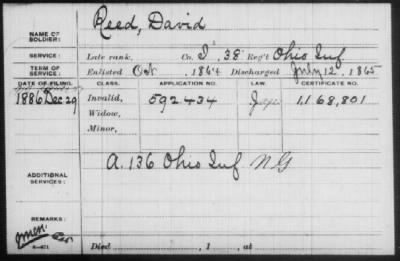 Reed, David
NAME OF SOLDIER:
SERVICE: Late rank, Co. I, 38 Reg't Ohio Inf.
TERM OF SERVICE: Enlisted Oct , 1864 Discharged July 12, 1865
DATE OF FILING. CLASS. APPLICATION NO. LAW. CERTIFICATE NO.
1886 Dec 29 Invalid, 592.434 1,168,801
Widow,
Minor,
ADDITIONAL SERVICES: A. 136 Ohio Inf NG
REMARKS:
Died , 1 , at